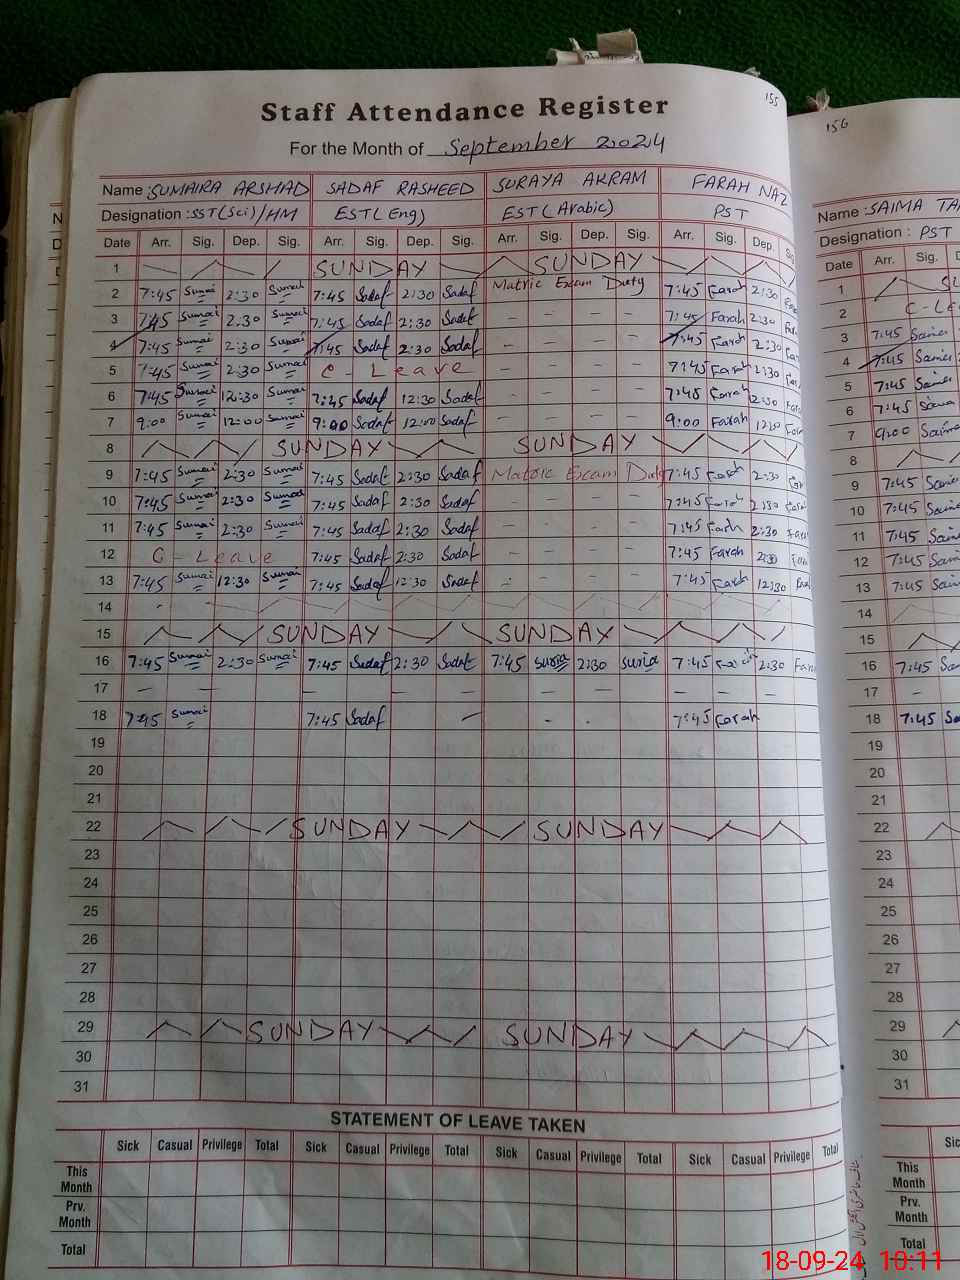 155
Staff Attendance Register
For the Month of September 2024
Name : SUMAIRA ARSHAD SADAF RASHEED SURAYA AKRAM FARAH NAZ
Designation : SST(Sci)/HM EST(Eng) EST(Arabic) PST
Date Arr. Sig. Dep. Sig. Arr. Sig. Dep. Sig. Arr. Sig. Dep. Sig. Arr. Sig. Dep.
1 SUNDAY SUNDAY
2 7:45 Sumai 2:30 Sumai 7:45 Sadaf 2:30 Sadaf Matric Exam Duty 7:45 Farah 2:30
3 7:45 Sumai 2:30 Sumai 7:45 Sadaf 2:30 Sadaf - - - - 7:45 Farah 2:30
4 7:45 Sumai 2:30 Sumai 7:45 Sadaf 2:30 Sadaf - - - - 7:45 Farah 2:30
5 7:45 Sumai 2:30 Sumai C - Leave - - - - 7:45 Farah 2:30
6 7:45 Sumai 12:30 Sumai 7:45 Sadaf 12:30 Sadaf - - - - 7:45 Farah 12:30
7 9:00 Sumai 12:00 Sumai 9:00 Sadaf 12:00 Sadaf - - - - 9:00 Farah
8 SUNDAY SUNDAY
9 7:45 Sumai 2:30 Sumai 7:45 Sadaf 2:30 Sadaf Matric Exam Duty 7:45 Farah 2:30
10 7:45 Sumai 2:30 Sumai 7:45 Sadaf 2:30 Sadaf - - - - 7:45 Farah 2:30
11 7:45 Sumai 2:30 Sumai 7:45 Sadaf 2:30 Sadaf - - - - 7:45 Farah 2:30
12 C - Leave 7:45 Sadaf 2:30 Sadaf - - - - 7:45 Farah 2:30
13 7:45 Sumai 12:30 Sumai 7:45 Sadaf 12:30 Sadaf - - - - 7:45 Farah 12:30
14
15 SUNDAY SUNDAY
16 7:45 Sumai 2:30 Sumai 7:45 Sadaf 2:30 Sadaf 7:45 Suria 2:30 Suria 7:45 2:30 Farah
17 - - - - - - - - - - -
18 7:45 Sumai 7:45 Sadaf - - 7:45 Farah
19
20
21
22 SUNDAY SUNDAY
23
24
25
26
27
28
29 SUNDAY SUNDAY
30
31
STATEMENT OF LEAVE TAKEN
Sick Casual Privilege Total Sick Casual Privilege Total Sick Casual Privilege Total Sick Casual Privilege Total
This Month
Prv. Month
Total
156
Name : SAIMA
Designation : PST
Date Arr. Sig.
1
2 C - Le
3 7:45 Saima
4 7:45 Saima
5 7:45 Saima
6 7:45 Saima
7 9:00 Saima
8
9 7:45 Saima
10 7:45 Saima
11 7:45 Saima
12 7:45 Saima
13 7:45 Saima
14
15
16 7:45
17 -
18 7:45
19
20
21
22
23
24
25
26
27
28
29
30
31
This Month
Prv. Month
Total
18-09-24 10:11